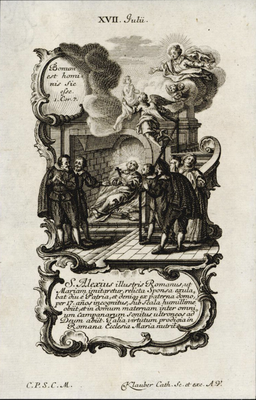 XVII. Julii.
Bonum
est homi
nis sic
esse.
1. Cor. 7.
S. Alexius illustris Romanus, ut
Mariam imitaretur, relicta Sponsa exula,
bat diu è Patria, et deniq; ex paterna domo,
per 17. años incognitus, sub scala humillime
obiit, et in domum maternam, inter omni,
um Campanarum Sonitus ultroneos ad
Deum abiit. Talia virtutum prodigia in
Romana Ecclesia Maria nutrit.
C. P. S. C. M.
Klauber Cath. Sc. et exc. A. V.